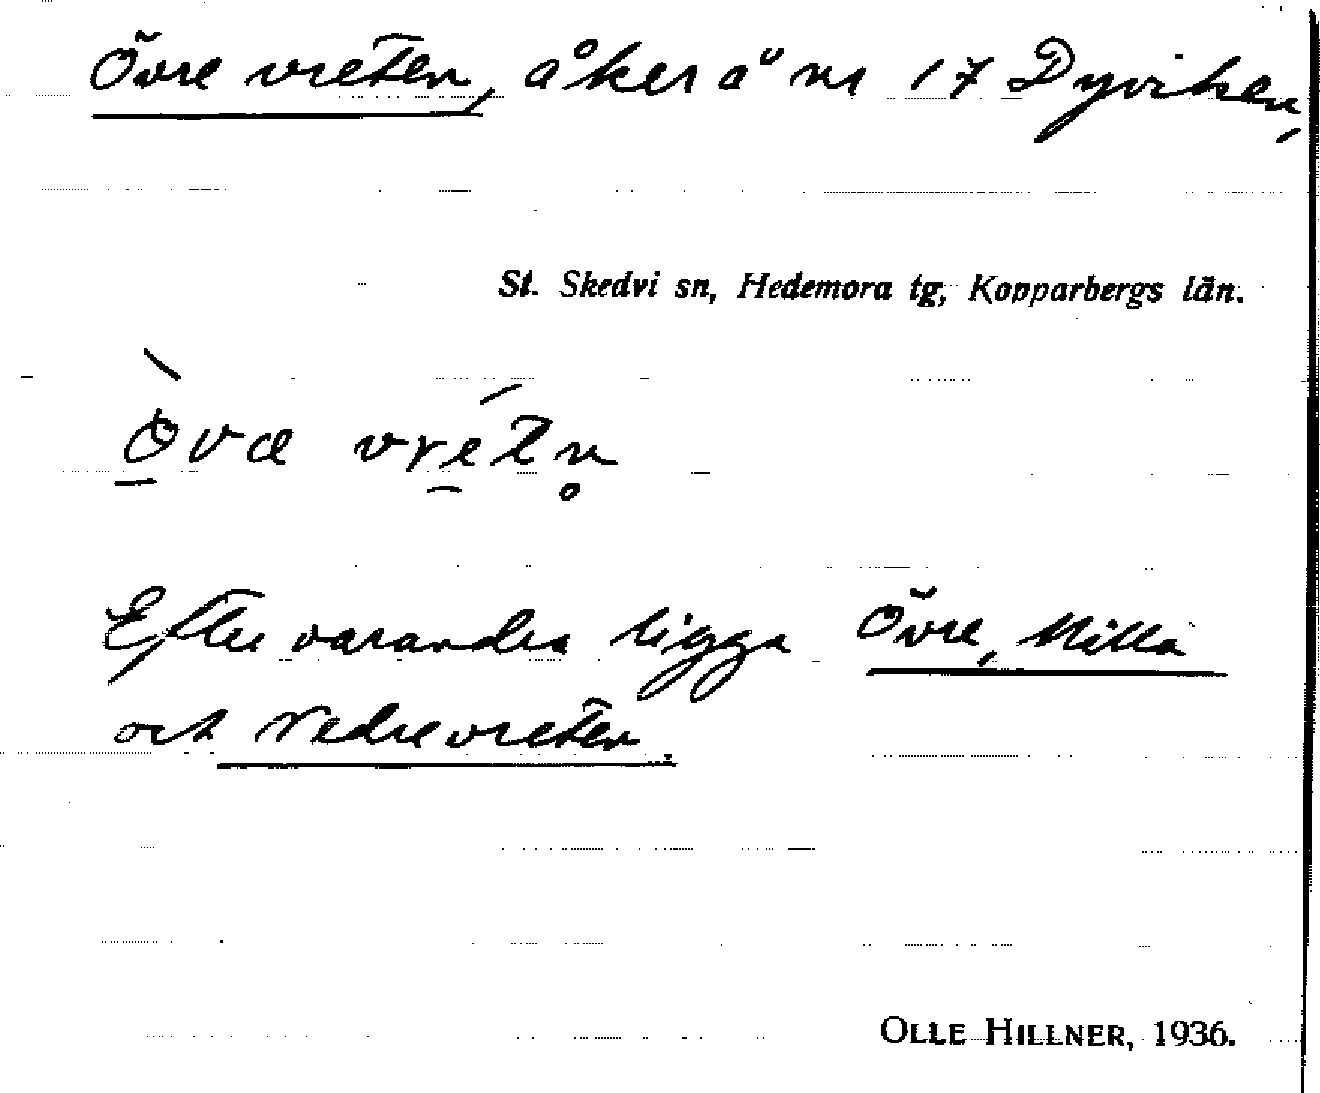 Övre vreten, åker å nr 17 Dyviken,
St. Skedvi sn, Hedemora tg, Kopparbergs län.
Efter varandra ligga Övre, Milla
och Nedre vreten.
OLLE HILLNER, 1936.